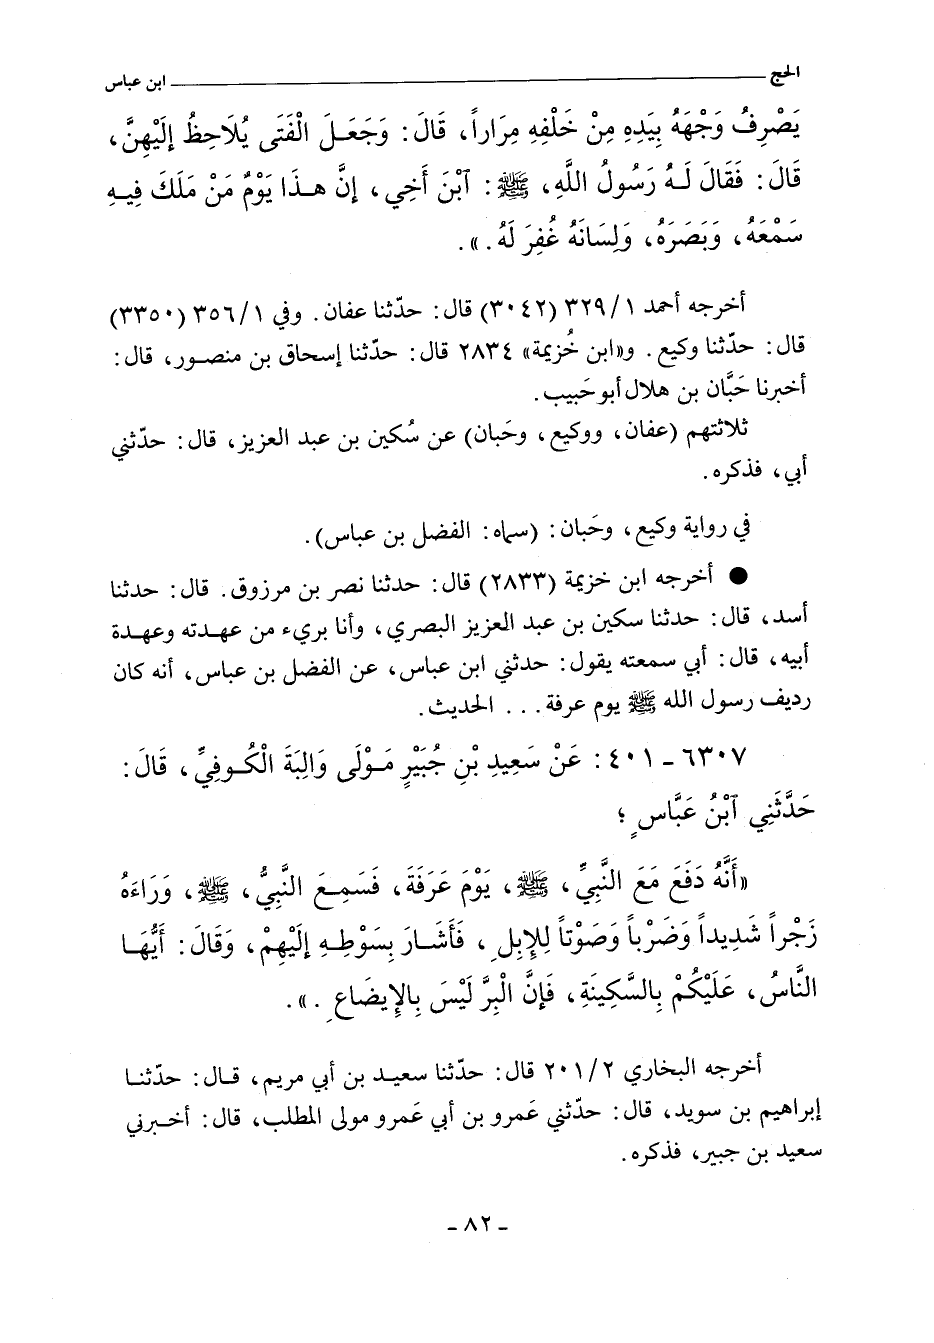 الحج ابن عباس
يَصْرِفُ وَجْهَهُ بِيَدِهِ مِنْ خَلْفِهِ مِرَاراً، قَالَ: وَجَعَلَ الْفَتَى يُلَاحِظُ إِلَيْهِنَّ،
قَالَ: فَقَالَ لَهُ رَسُولُ اللَّهِ، ﷺ: ٱبْنَ أَخِي، إِنَّ هذَا يَوْمٌ مَنْ مَلَكَ فِيهِ
سَمْعَهُ، وَبَصَرَهُ، وَلِسَانَهُ غُفِرَ لَهُ.».
أخرجه أحمد ١/ ٣٢٩ (٣٠٤٢) قال: حدّثنا عفان. وفي ١/ ٣٥٦ (٣٣٥٠)
قال: حدّثنا وكيع. و«ابن خُزيمة» ٢٨٣٤ قال: حدّثنا إسحاق بن منصور، قال:
أخبرنا حَبَّان بن هلال أبو حَبيب.
ثلاثتهم (عفان، ووكيع، وحَبان) عن سُكين بن عبد العزيز، قال: حدّثني
أبي، فذكره.
في رواية وكيع، وحَبان: (سماه: الفضل بن عباس).
● أخرجه ابن خزيمة (٢٨٣٣) قال: حدثنا نصر بن مرزوق. قال: حدثنا
أسد، قال: حدثنا سكين بن عبد العزيز البصري، وأنا بريء من عهدته وعهدة
أبيه، قال: أبي سمعته يقول: حدثني ابن عباس، عن الفضل بن عباس، أنه كان
رديف رسول الله ﷺ يوم عرفة... الحديث.
٦٣٠٧ - ٤٠١: عَنْ سَعِيدِ بْنِ جُبَيْرٍ مَوْلَى وَالِبَةَ الْكُوفِيِّ، قَالَ:
حَدَّثَنِي ٱبْنُ عَبَّاسٍ؛
«أَنَّهُ دَفَعَ مَعَ النَّبِيِّ، ﷺ، يَوْمَ عَرَفَةَ، فَسَمِعَ النَّبِيُّ، ﷺ، وَرَاءَهُ
زَجْراً شَدِيداً وَضَرْباً وَصَوْتاً لِلإِبِلِ، فَأَشَارَ بِسَوْطِهِ إِلَيْهِمْ، وَقَالَ: أَيُّهَا
النَّاسُ، عَلَيْكُمْ بِالسَّكِينَةِ، فَإِنَّ الْبِرَّ لَيْسَ بِالإِيضَاعِ.».
أخرجه البخاري ٢/ ٢٠١ قال: حدّثنا سعيد بن أبي مريم، قال: حدّثنا
إبراهيم بن سويد، قال: حدّثني عَمرو بن أبي عَمرو مولى المطلب، قال: أخبرني
سعيد بن جبير، فذكره.
- ٨٢ -